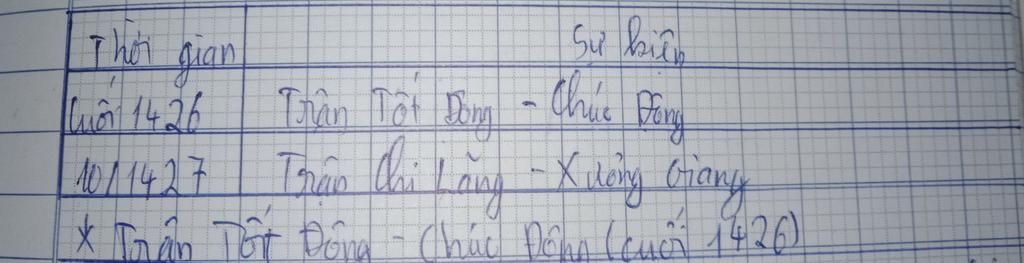 Thời gian Sự kiện
Cuối 1426 Trận Tốt Động - Chúc Động
10/1427 Trận Chi Lăng - Xương Giang
* Trận Tốt Động - Chúc Động (cuối 1426)